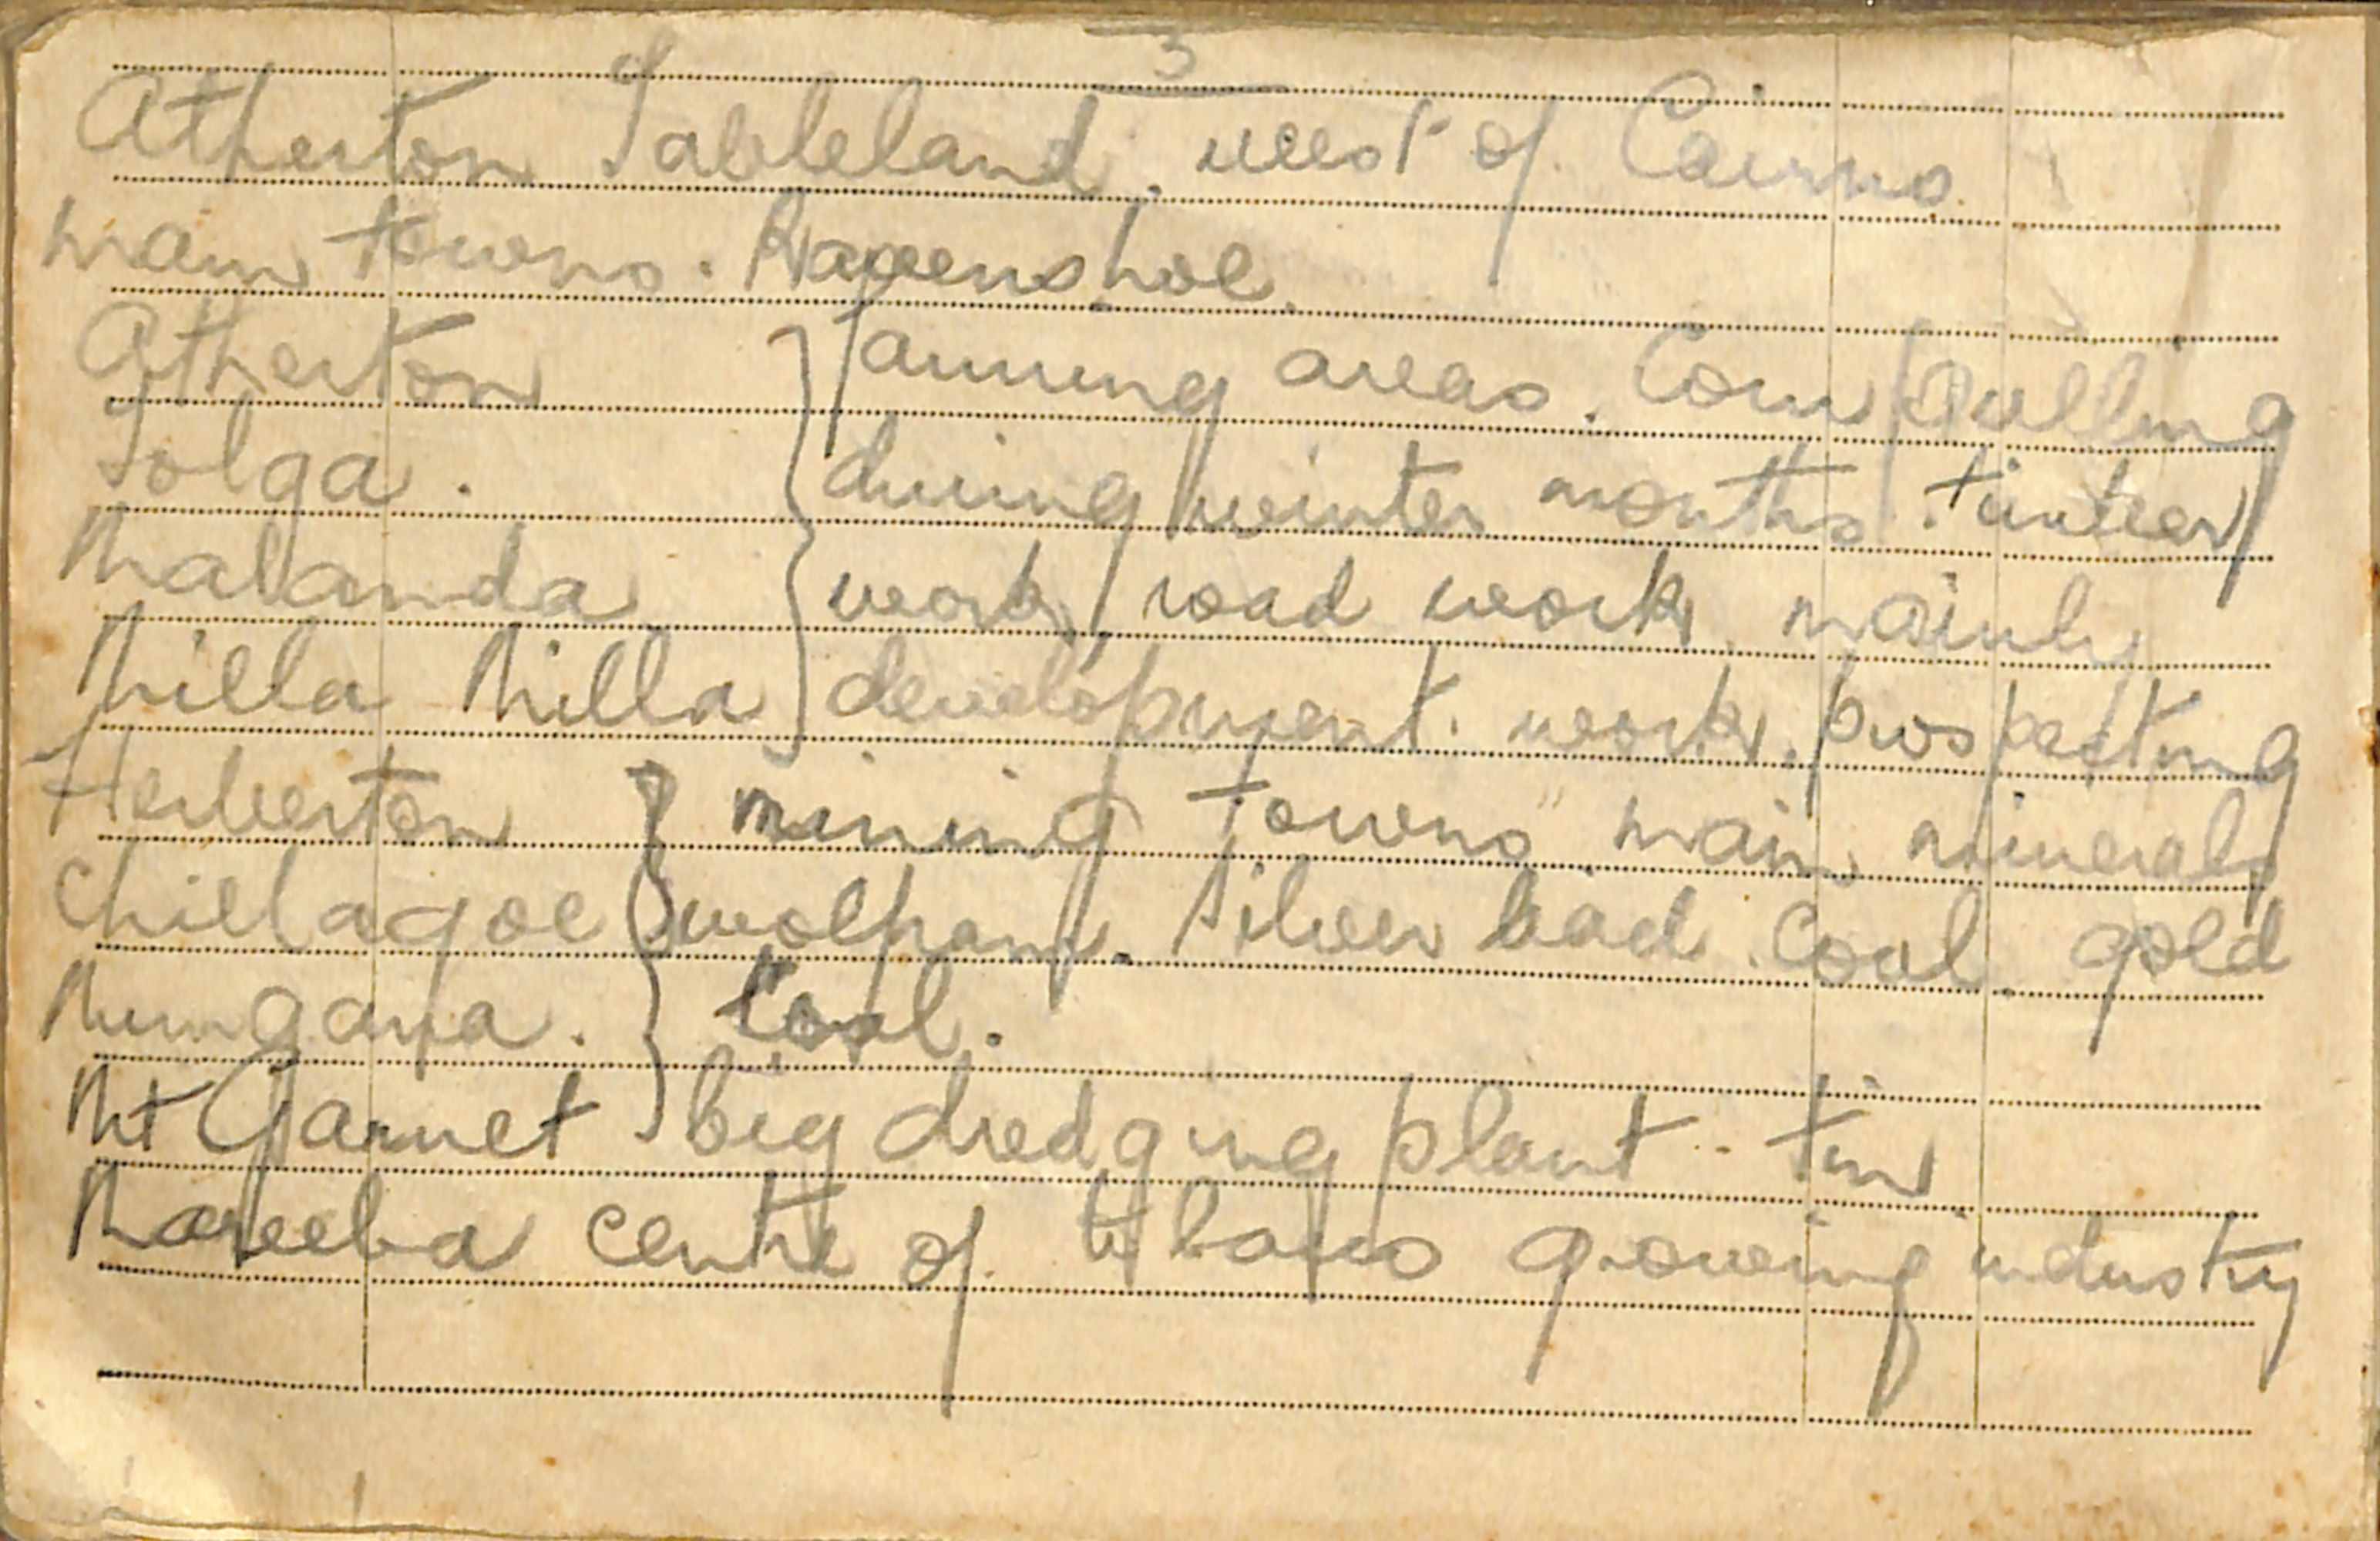 3
Atherton Tableland. west of Cairns.
main towns. Ravenshoe.
Atherton } farming areas. Corn pulling
Tolga. } during winter months. timber
Malanda } work, road work, mainly
Milla Milla } development. work, prospecting
Herberton } mining towns main minerals
Chillagoe } wolfram. Silver lead. Coal. gold
Mungana. } Coal.
Mt Garnet } big dredging plant - tin
Mareeba centre of tobacco growing industry